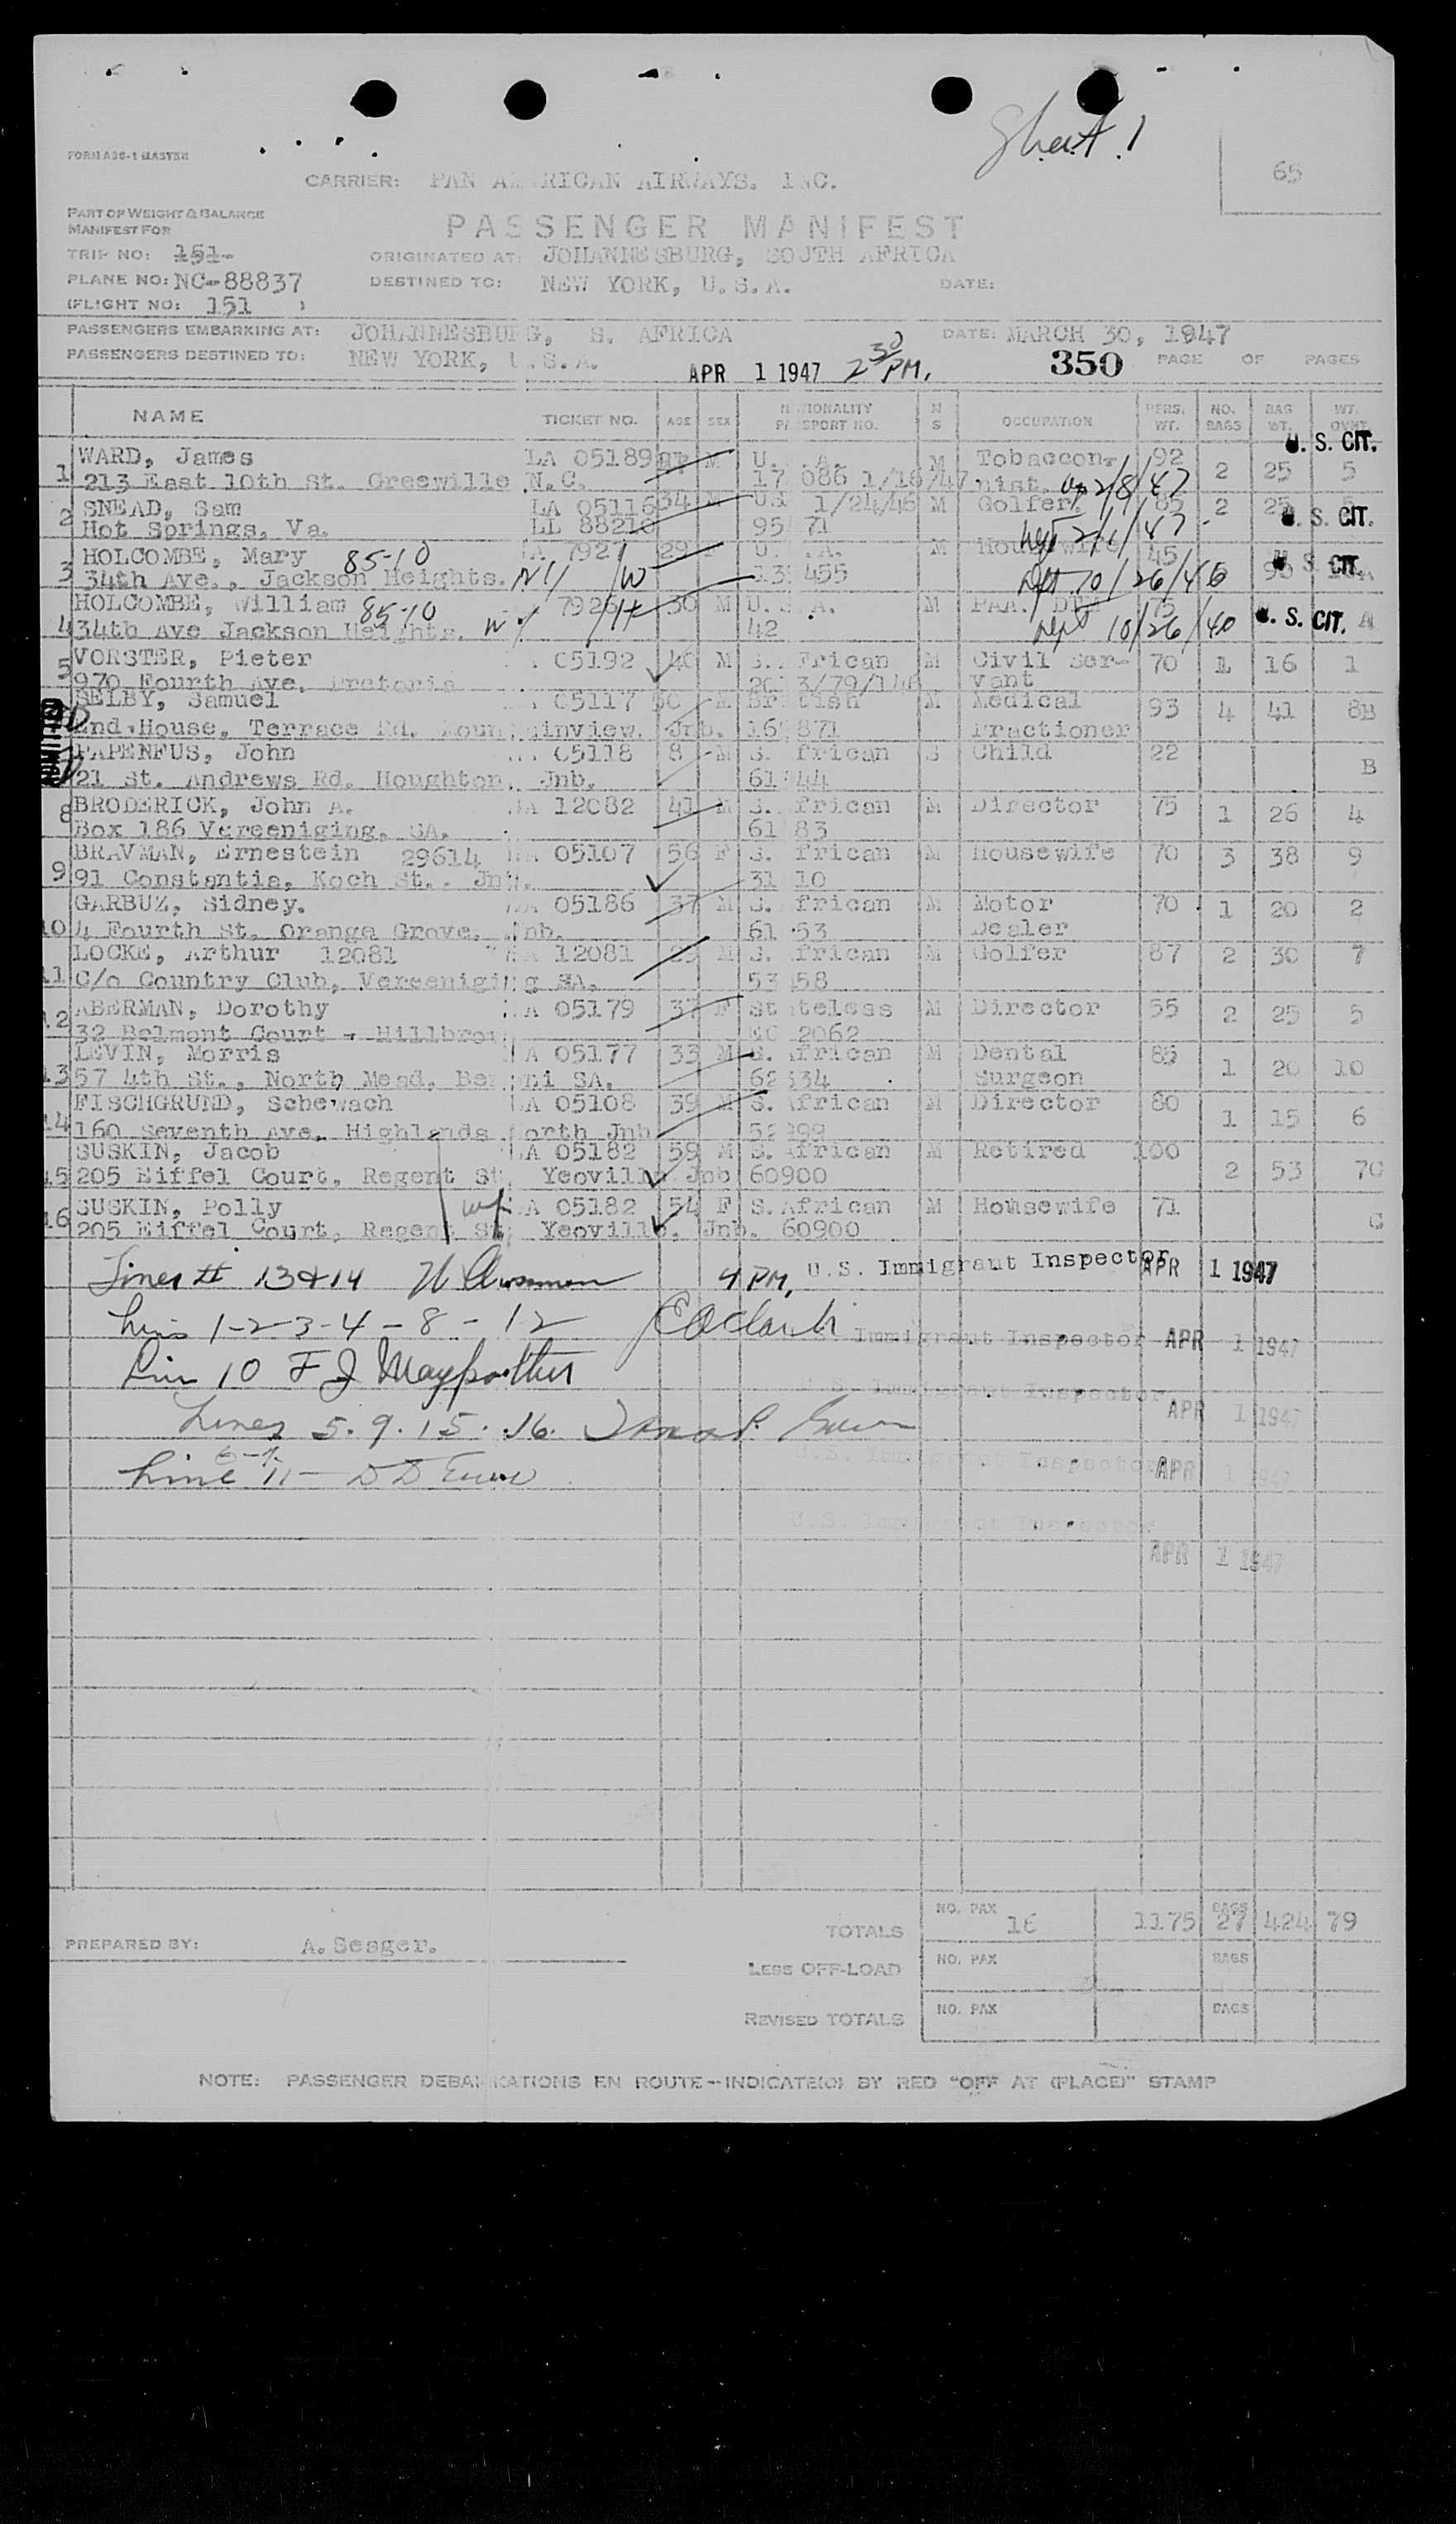 Sheet 1
FORM A36-1 MASTER
65
CARRIER: PAN AMERICAN AIRWAYS, INC.
PART OF WEIGHT & BALANCE
MANIFEST FOR
PASSENGER MANIFEST
TRIP NO: 151
ORIGINATED AT: JOHANNESBURG, SOUTH AFRICA
PLANE NO: NC-88837
DESTINED TO: NEW YORK, U.S.A. DATE:
(FLIGHT NO: 151 )
PASSENGERS EMBARKING AT: JOHANNESBURG, S. AFRICA DATE: MARCH 30, 1947
PASSENGERS DESTINED TO: NEW YORK, U.S.A. APR 1 1947 2 30 PM. 350 PAGE OF PAGES
NAME TICKET NO. AGE SEX NATIONALITY PASSPORT NO. M S OCCUPATION PERS. WT. NO. BAGS BAG WT. WT. OVWT
U. S. CIT.
WARD, James LA 05189 M U. M Tobacco- 92
1 213 East 10th St. Greswille N.C. 17 086 1/18/47 nist. 2/8/47 2 25 5
SNEAD, Sam LA 05116 34 M U.S 1/24/46 M Golfer. 85 2 25 5
2 Hot Springs, Va. LL 88210 95 71 2/1/47 U. S. CIT.
HOLCOMBE, Mary 85-10 7927 29 U. .A. M Housewife 45
3 34th Ave., Jackson Heights. NY /W 13 455 Dept 10/26/46 U S CIT.
HOLCOMBE, William 85-10 7926 /H 30 M U. S. A. M PAA. 75
4 34th Ave Jackson Heights. NY 42 Dept 10/26/40 U. S. CIT. A
VORSTER, Pieter 05192 40 M S. African M Civil Ser- 70 1 16 1
5 970 Fourth Ave. Pretoria 20 3/79/146 vant
SELBY, Samuel 05117 30 M British M Medical 93 4 41 8B
2nd House, Terrace Rd. Mountainview. Jnb. 16 871 Practioner
ADMITTED
PAPENFUS, John 05118 8 M S. African S Child 22
21 St. Andrews Rd. Houghton. Jnb. 61 44 B
BRODERICK, John A. LA 12082 41 M S. African M Director 75 1 26 4
8 Box 186 Vereeniging. SA. 61 83
BRAVMAN, Ernestein 29614 LA 05107 56 F S. African M Housewife 70 3 38 9
9 91 Constantia, Koch St.. Jnb. 31 10
GARBUZ, Sidney. LA 05186 37 M S. African M Motor 70 1 20 2
10 4 Fourth St. Orange Grove. Jnb. 61 53 Dealer
LOCKE, Arthur 12081 LA 12081 29 M S. African M Golfer 87 2 30 7
11 C/o Country Club, Vereeniging SA. 53 58
ABERMAN, Dorothy LA 05179 37 F Stateless M Director 55 2 25 5
12 32 Belmont Court - Hillbrow EC 2062
LEVIN, Morris LA 05177 33 M S. African M Dental 85 1 20 10
13 57 4th St., North Mead. Benoni SA. 62 534 Surgeon
FISCHGRUND, Schewach LA 05108 39 M S. African M Director 80 1 15 6
14 160 Seventh Ave. Highlands North Jnb 52 99
SUSKIN, Jacob LA 05182 59 M S. African M Retired 100 2 53 7C
15 205 Eiffel Court, Regent St. Yeoville Jnb 60900
SUSKIN, Polly wf LA 05182 54 F S. African M Housewife 71 C
16 205 Eiffel Court, Regent St. Yeoville. Jnb. 60900
Lines # 13 & 14 4 PM, U.S. Immigrant Inspector APR 1 1947
Lines 1-2-3-4-8-12 Immigrant Inspector APR 1 1947
Line 10 F J U.S. Immigrant Inspector APR 1 1947
Lines 5. 9. 15. 16. U.S. Immigrant Inspector APR 1 1947
6-7
Line 11 - U.S. Immigrant Inspector APR 1 1947
TOTALS NO. PAX 16 1175 BAGS 27 424 79
PREPARED BY: A. Seager.
LESS OFF-LOAD NO. PAX BAGS
REVISED TOTALS NO. PAX BAGS
NOTE: PASSENGER DEBARKATIONS EN ROUTE-INDICATE(D) BY RED "OFF AT (PLACE)" STAMP